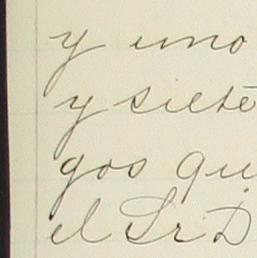 y uno
y siete
gos qu
el Sr D